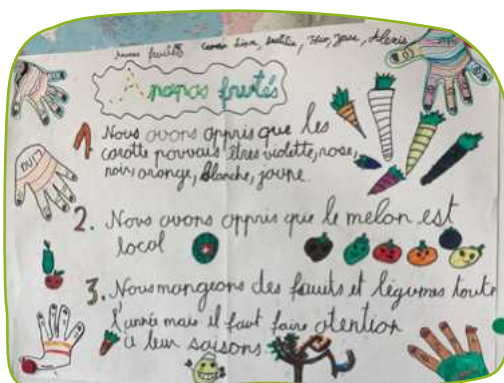 fruités
Lina, Jesse, Alexis
A nanas fruités
1 Nous avons appris que les
carotte pouvais êtres violette, rose,
noir, orange, blanche, jaune.
2. Nous avons appris que le melon est
local
3. Nous mangeons des fruits et légumes toute
l'année mais il faut faire atention
a leur saisons.